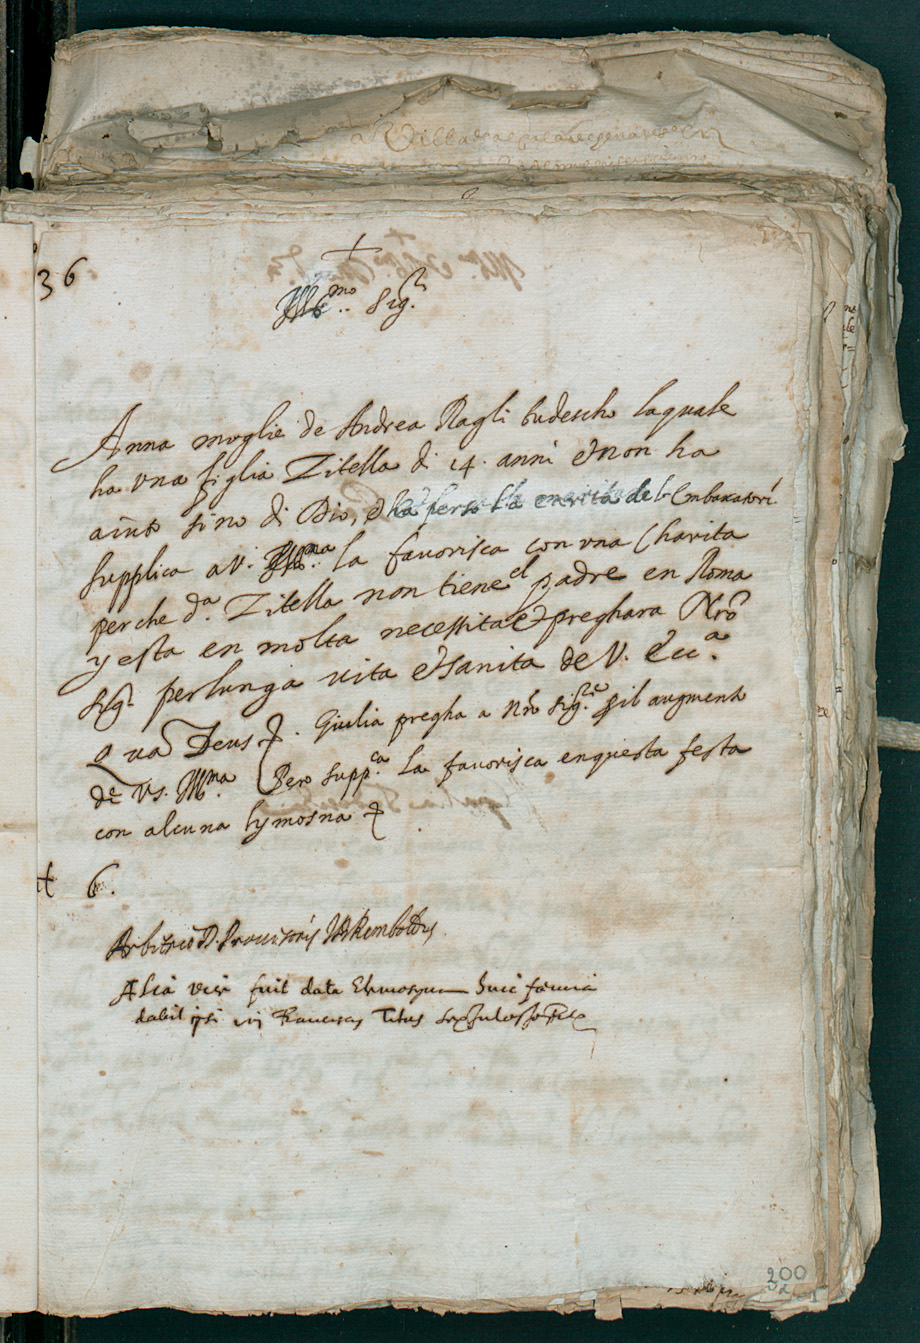 36
Ill.mo Sig.r
Anna moglie de Andrea Ragli tudescho laquale
ha vna figlia Zitella di 14. anni et non ha
aiuto sino di Dio, et ha perso la de li Embaxatori
supplica a V. Ill.ma la favorisca con vna Charita
perche d.a Zitella non tiene el padre en Roma
y esta en molta necessita et preghara Nro
Sig.r per lunga vita et sanita de V. Ecc.a
Qua Deus. Giulia pregha a Nro Sig.re p il augmento
de Vs. Ill.ma Pero supp.ca La favorisca en questa festa
con alcuna lymosna
6.
Arbitrio D. Provisoris
Alia vice fuit data Elemosyna huic
dabit ipsi
200